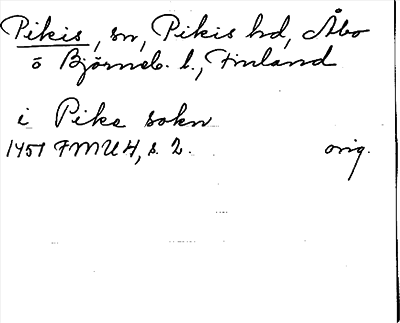 Pikis, sn, Pikis hd, Åbo
o Björneb. l., Finland
i Pike sokn
1451 FMU 4, s. 2. orig.